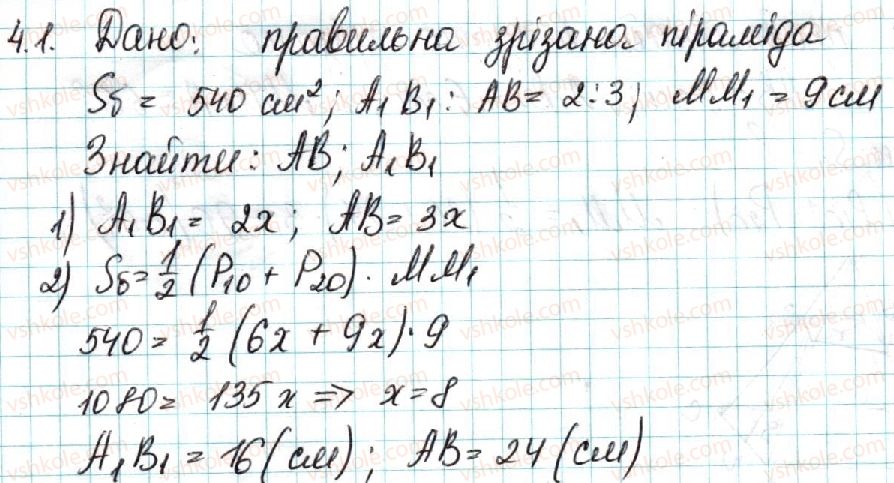 4.1. Дано: правильна зрізана піраміда
Sб = 540 см²; A₁B₁ : AB = 2:3; MM₁ = 9 см
Знайти: AB; A₁B₁
1) A₁B₁ = 2x; AB = 3x
2) Sб = 1/2 (P₁₀ + P₂₀) · MM₁
540 = 1/2 (6x + 9x) · 9
1080 = 135x => x = 8
A₁B₁ = 16 (см); AB = 24 (см)